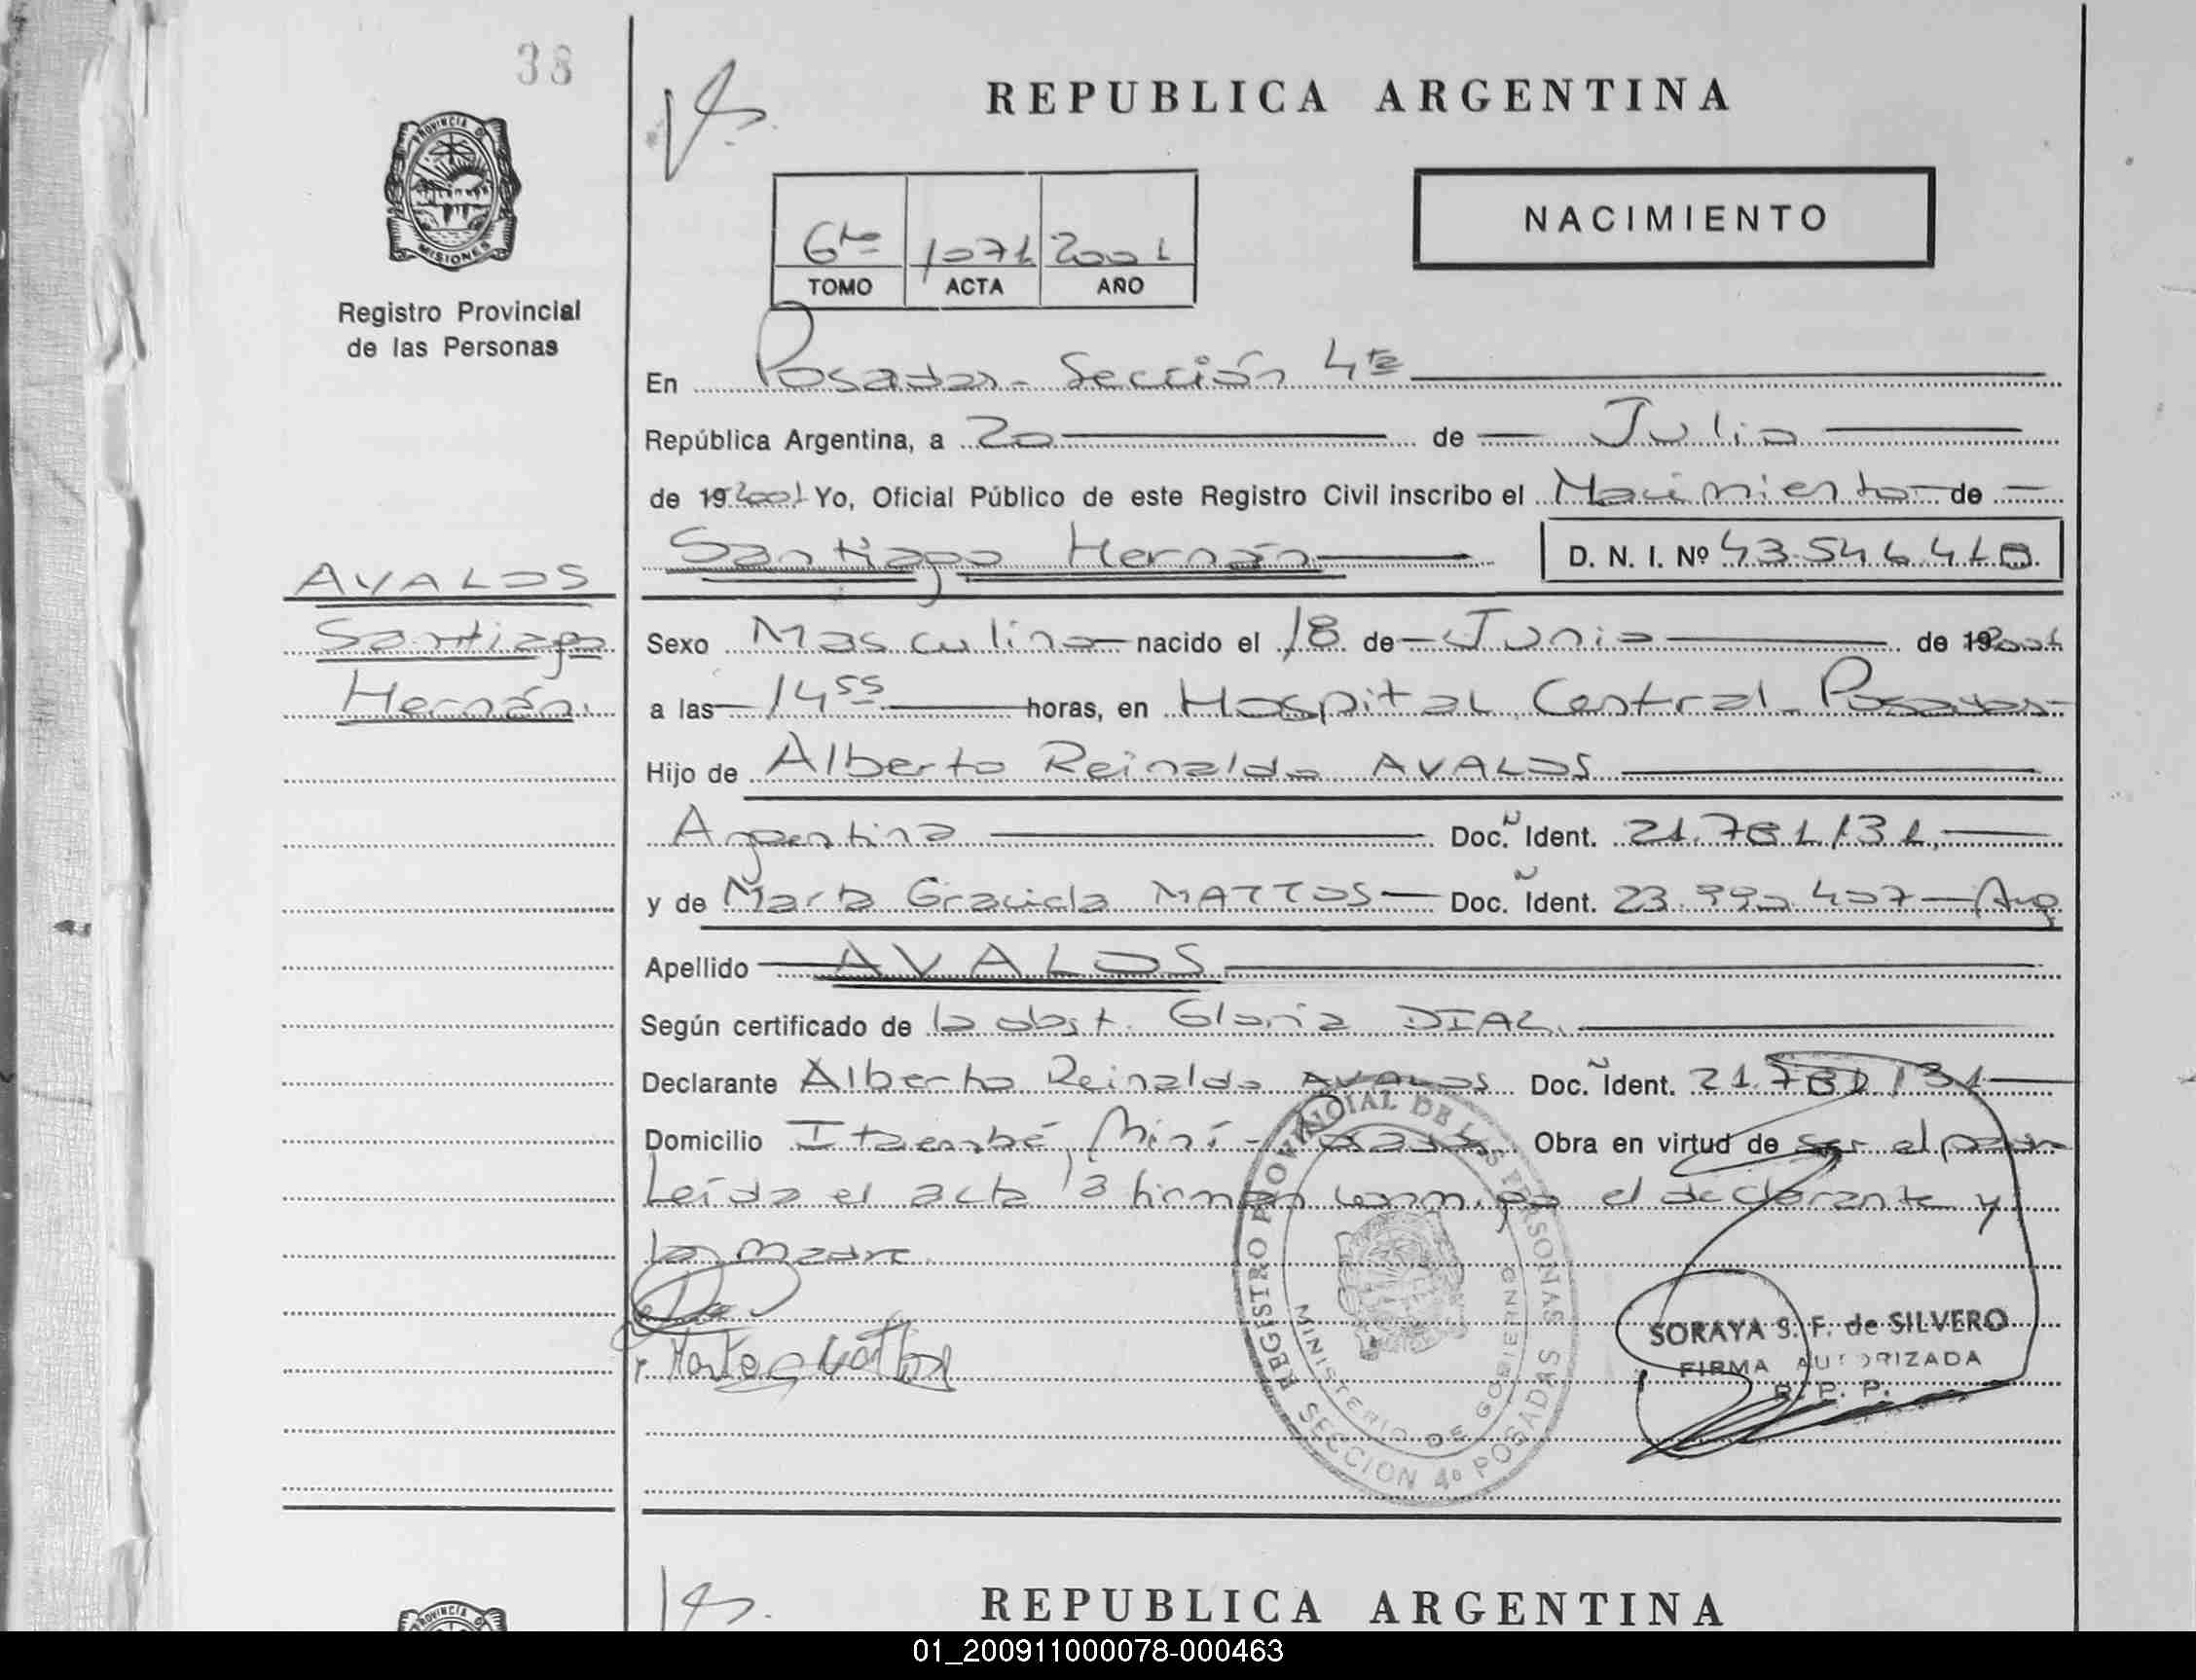 38
PROVINCIA DE
MISIONES
Registro Provincial
de las Personas
REPUBLICA ARGENTINA
NACIMIENTO
6to 1071 2001
TOMO ACTA AÑO
En Posadas - Sección 4ta
República Argentina, a 20 de Julio
de 19 2001 Yo, Oficial Público de este Registro Civil inscribo el Nacimiento de
Santiago Hernán D. N. I. Nº 43.546.410.
AVALOS
Santiago
Hernán.
Sexo Masculino nacido el 18 de Junio de 19 2001
a las 14 55 horas, en Hospital Central - Posadas
Hijo de Alberto Reinaldo AVALOS
Argentina Doc. Ident. 21.781.131,
y de Marta Graciela MATTOS Doc. Ident. 23.990.407 - Arg
Apellido AVALOS
Según certificado de la obst. Gloria DIAZ.
Declarante Alberto Reinaldo AVALOS Doc. Ident. 21.781.131
Domicilio Itaembé Miní - Posadas Obra en virtud de ser el padre
Leída el acta la firman conmigo el declarante y
la madre.
REGISTRO PROVINCIAL DE LAS PERSONAS
MINISTERIO DE GOBIERNO
SECCION 4º POSADAS
SORAYA S. F. de SILVERO
FIRMA AUTORIZADA
R. P. P.
REPUBLICA ARGENTINA
PROVINCIA D
01_200911000078-000463